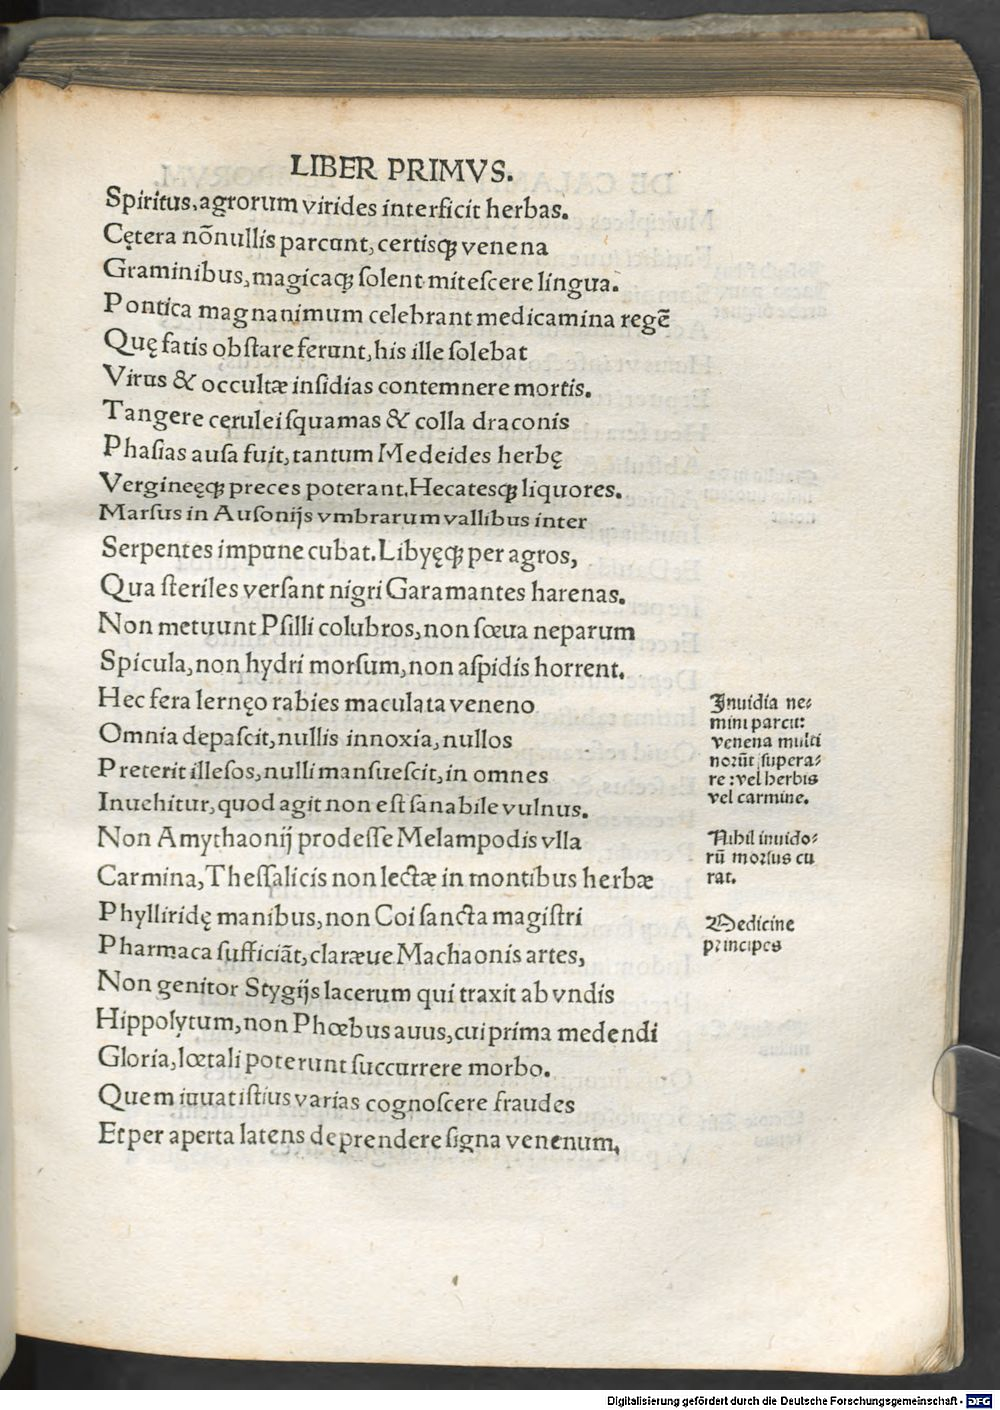 LIBER PRIMVS.
Spiritus, agrorum virides interficit herbas.
Cętera nõnullis parcunt, certisqꝫ venena
Graminibus, magicaqꝫ ſolent miteſcere lingua.
Pontica magnanimum celebrant medicamina regẽ
Quę fatis obſtare ferunt, his ille ſolebat
Virus & occultæ inſidias contemnere mortis.
Tangere cerulei ſquamas & colla draconis
Phaſias auſa fuit, tantum Medeides herbę
Vergineęqꝫ preces poterant. Hecatesqꝫ liquores.
Marſus in Auſonijs vmbrarum vallibus inter
Serpentes impune cubat. Libyęqꝫ per agros,
Qua ſteriles verſant nigri Garamantes harenas.
Non metuunt Pſilli colubros, non ſœua neparum
Spicula, non hydri morſum, non aſpidis horrent.
Hec fera lernęo rabies maculata veneno
Omnia depaſcit, nullis innoxia, nullos
Preterit illeſos, nulli manſueſcit, in omnes
Inuehitur, quod agit non eſt ſanabile vulnus.
Non Amythaonij prodeſſe Melampodis vlla
Carmina, Theſſalicis non lectæ in montibus herbæ
Phylliridę manibus, non Coi ſancta magiſtri
Pharmaca ſufficiãt, claræue Machaonis artes,
Non genitor Stygijs lacerum qui traxit ab vndis
Hippolytum, non Phœbus auus, cui prima medendi
Gloria, lœtali poterunt ſuccurrere morbo.
Quem iuuat iſtius varias cognoſcere fraudes
Et per aperta latens deprendere ſigna venenum,
Inuidia ne⸗
mini parcit:
venena multi
norũt ſupera⸗
re: vel herbis
vel carmine.
Nihil inuido⸗
rũ morſus cu
rat.
Medicine
principes
Digitalisierung gefördert durch die Deutsche Forschungsgemeinschaft - DFG